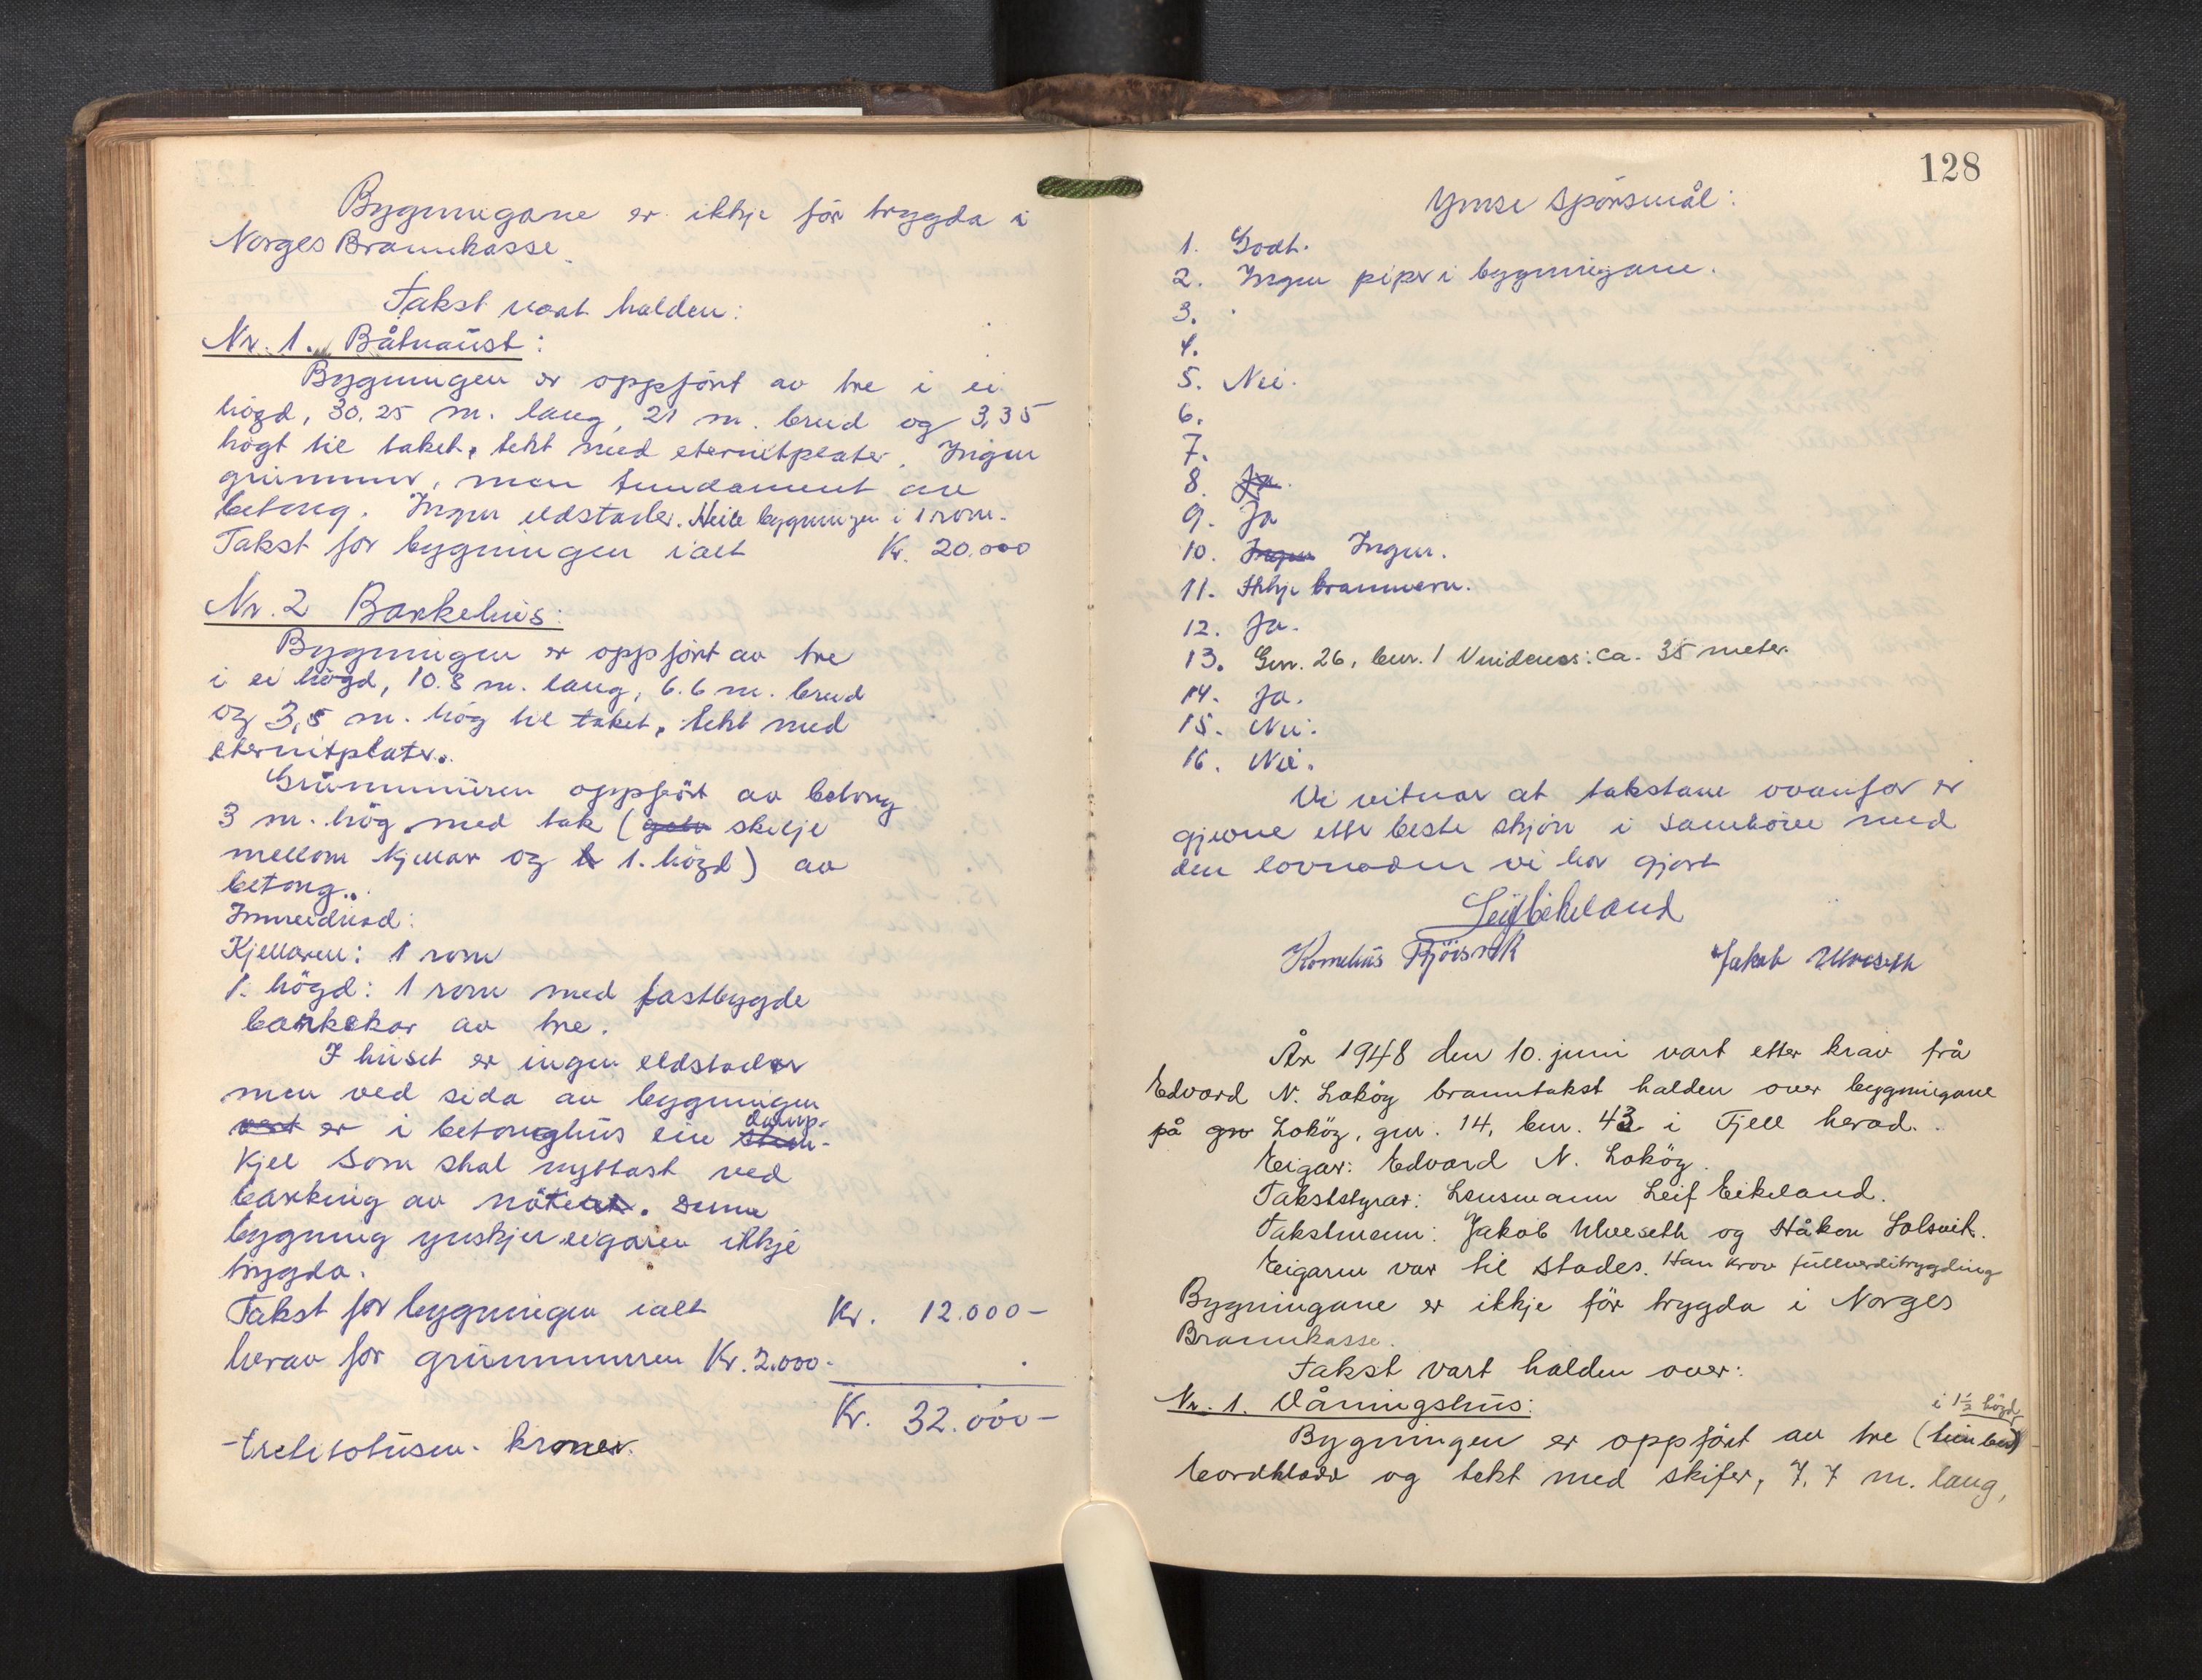 Bygningane er ikkje för trygda i
Norges Brannkasse.
Takst vart halden:
Nr. 1. Båtnaust:
Bygningen er oppfört av tre i ei
högd, 30,25 m. lang, 21 m. breid og 3,35
högt til taket, tekt med eternitplater. Ingen
grunnmur, men fundament av
betong. Ingen eldstader. Heile bygningen i 1 rom.
Takst for bygningen ialt Kr. 20.000
Nr. 2 Barkehus:
Bygningen er oppfört av tre
i ei högd, 10.8 m. lang, 6.6 m. breid
og 3,5 m. hög til taket, tekt med
eternitplater.
Grunnmuren oppfört av betong
3 m. hög med tak ( skilje
mellom kjellar og 1. högd) av
betong.
Innreidnad:
Kjellaren: 1 rom
1. högd: 1 rom med fastbygde
barkekar av tre.
I huset er ingen eldstader
men ved sida av bygningen
er i betonghus ein damp-
kjel som skal nyttast ved
barking av nöter. Denne
bygning ynskjer eigaren ikkje
trygda.
Takst for bygningen ialt Kr. 12.000-
herav for grunnmuren Kr. 2.000.-
Kr. 32.000-
-trettitotusen- kroner.
128
Ymse spörsmål:
1. Godt.
2. Ingen piper i bygningane.
3.
4.
5. Nei.
6.
7.
8. Ja.
9. Ja
10. Ingen Ingen.
11. Ikkje brannvern.
12. Ja.
13. Gnr. 26, bnr. 1 Vindenes: ca. 35 meter.
14. Ja.
15. Nei.
16. Nei.
Vi vitnar at takstane ovanfor er
gjevne etter beste skjön i samhöve med
den lovnaden vi har gjort
Leif Eikeland
Kornelius Fjörsvik Jakob Ulveseth
År 1948 den 10. juni vart etter krav frå
Edvard N. Loköy branntakst halden over bygningane
på gnr Loköy, gnr. 14, bnr. 43 i Fjell herad.
Eigar: Edvard N. Loköy.
Takststyrar: Lensmann Leif Eikeland.
Takstmenn: Jakob Ulveseth og Håkon Solsvik.
Eigaren var til stades. Han krov fullverditrygding
Bygningane er ikkje för trygda i Norges
Brannkasse.
Takst vart halden over:
Nr. 1. Våningshus:
i 1½ högd
Bygningen er oppfört av tre (timber)
bordkledd og tekt med skifer, 7,7 m. lang,